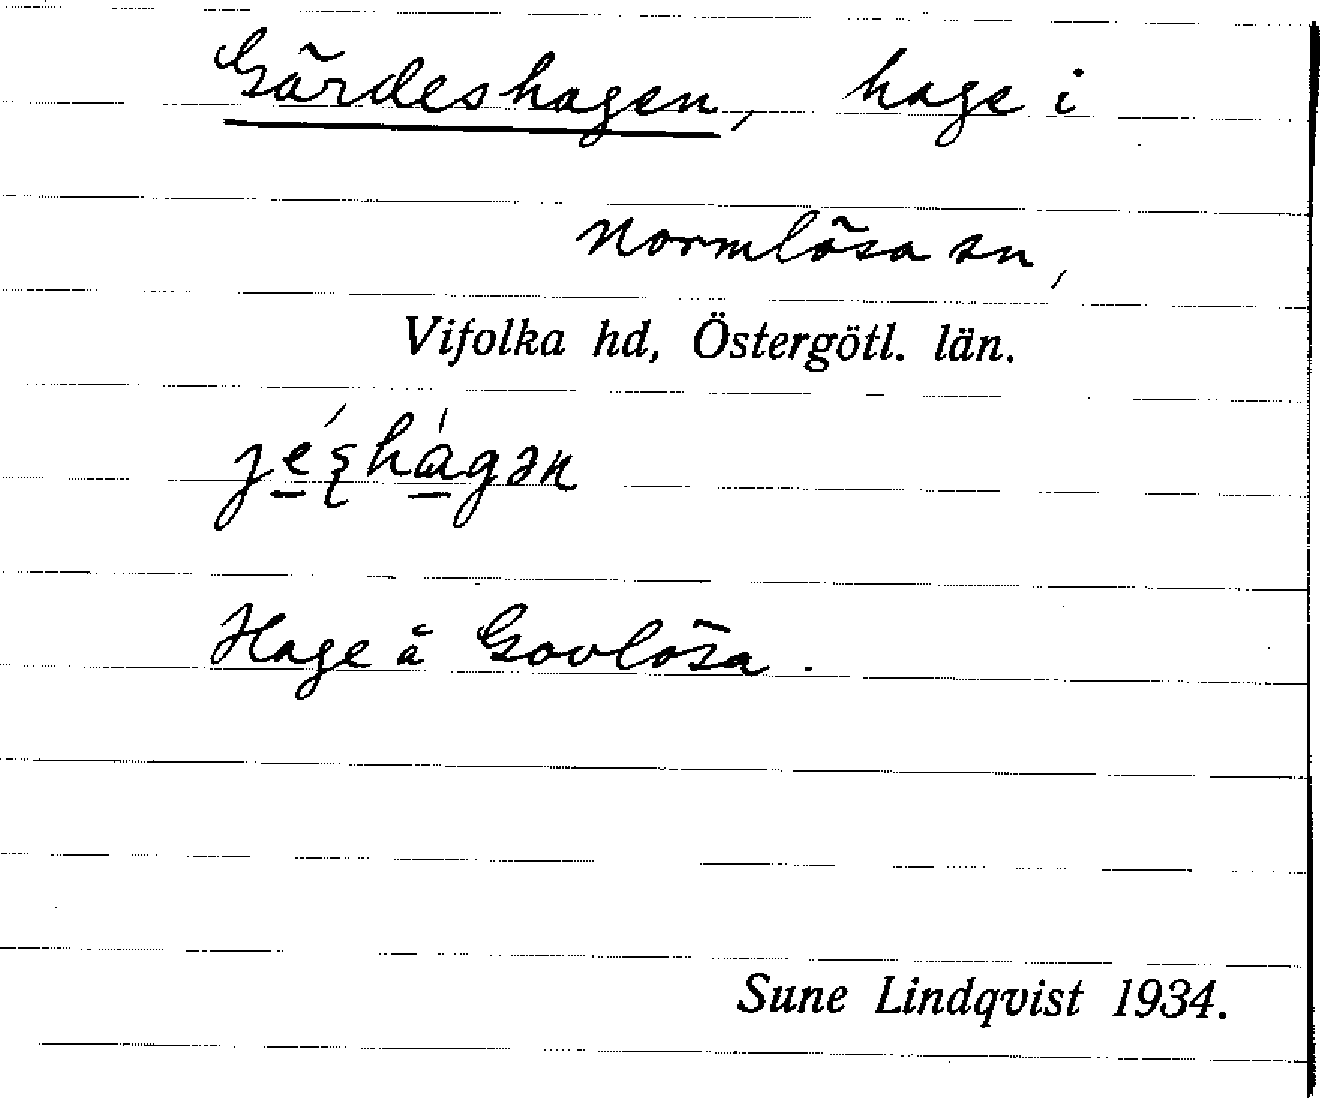 Gärdeshagen, hage i
Normlösa sn,
Vifolka hd, Östergötl. län.
Hage å Govlösa.
Sune Lindqvist 1934.